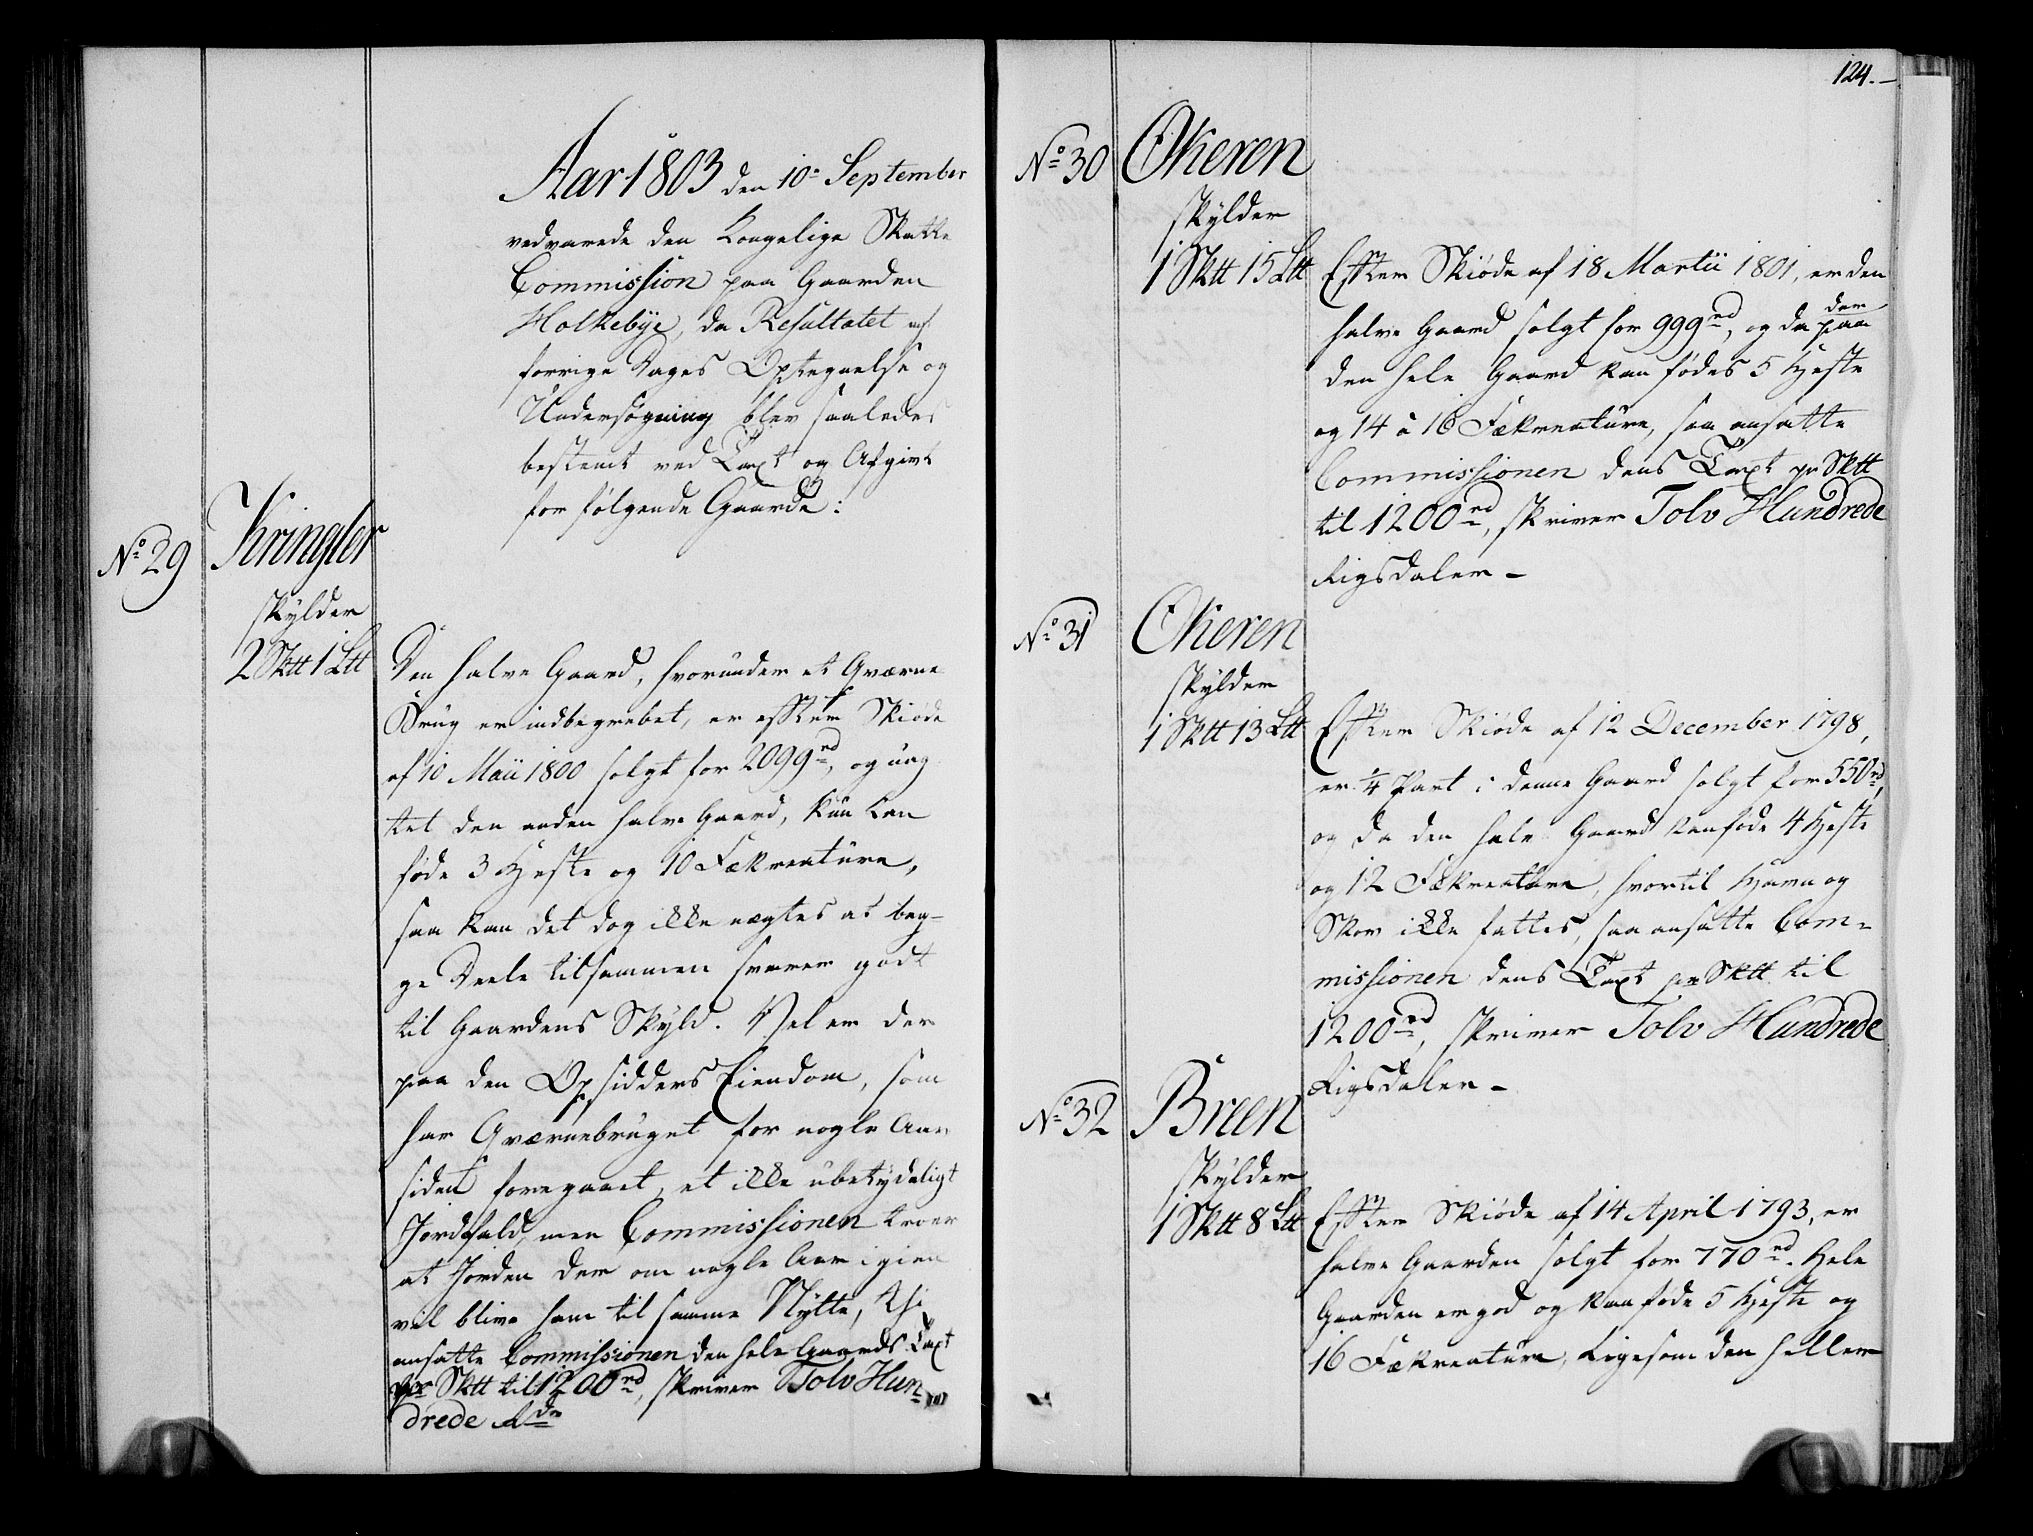 Aar 1803 den 10de September
vedvarede den Kongelige Skatte
Commission paa Gaarden
Holkebÿe, da Resultatet af
forrige Dages Optegnelse og
Undersøgning blev saaledes
bestemt ved Taxt og Afgivt
for følgende Gaarde:
No 29
Kringler
skÿlder
2 Sktt 1 Ltt
Den halve Gaard, hvorunder et Qværne
Brug er indbegrebet, er efter Skiøde
af 10 Maii 1800 solgt for 2099 rd, og uag
tet den anden halve Gaard, kun kan
føde 3 Heste og 10 Fækreature,
saa kan det dog ikke nægtes at beg-
ge Deele tilsammen svarer godt
til Gaardens Skÿld. Vel er der
paa den Opsidders Eiendom, som
har Qværnebruget for nogle Aar
siden foregaaet, et ikke ubetÿdeligt
Jordfald, men Commissionen troer
at Jorden der om nogle Aar igien
vil blive ham til samme Nÿtte, thi
ansatte Commissionen den hele Gaards Taxt
per Sktt til 1200 rd, skriver Tolv Hun-
drede Rdr
124.-
No 30
Okeren
skÿlder
1 Sktt 15 Ltt
Efter Skiøde af 18 Martii 1801, er den
halve Gaard solgt for 999 rd, og da der paa
den hele Gaard kan fødes 5 Heste
og 14 à 16 Fækreature, saa ansatte
Commissionen dens Taxt pr Sktt
til 1200 rd, skriver Tolv Hundrede
Rigsdaler -
No 31
Okeren
skÿlder
1 Sktt 13 Ltt
Efter Skiøde af 12 December 1798,
er 1/4 Part i denne Gaard solgt for 550 rd,
og da den hele Gaard kan føde 4 Heste
og 12 Fækreature, hvortil Havn og
Skov ikke fattes, saa ansatte Com-
missionen dens Taxt pr Sktt til
1200 rd, skriver Tolv Hundrede
Rigsdaler -
No 32
Breen
skÿlder
1 Sktt 8 Ltt
Efter Skiøde af 14 April 1793, er
halve Gaarden solgt for 770 rd. Hele
Gaarden er god og kan føde 5 Heste og
16 Fækreature, Ligesom den heller